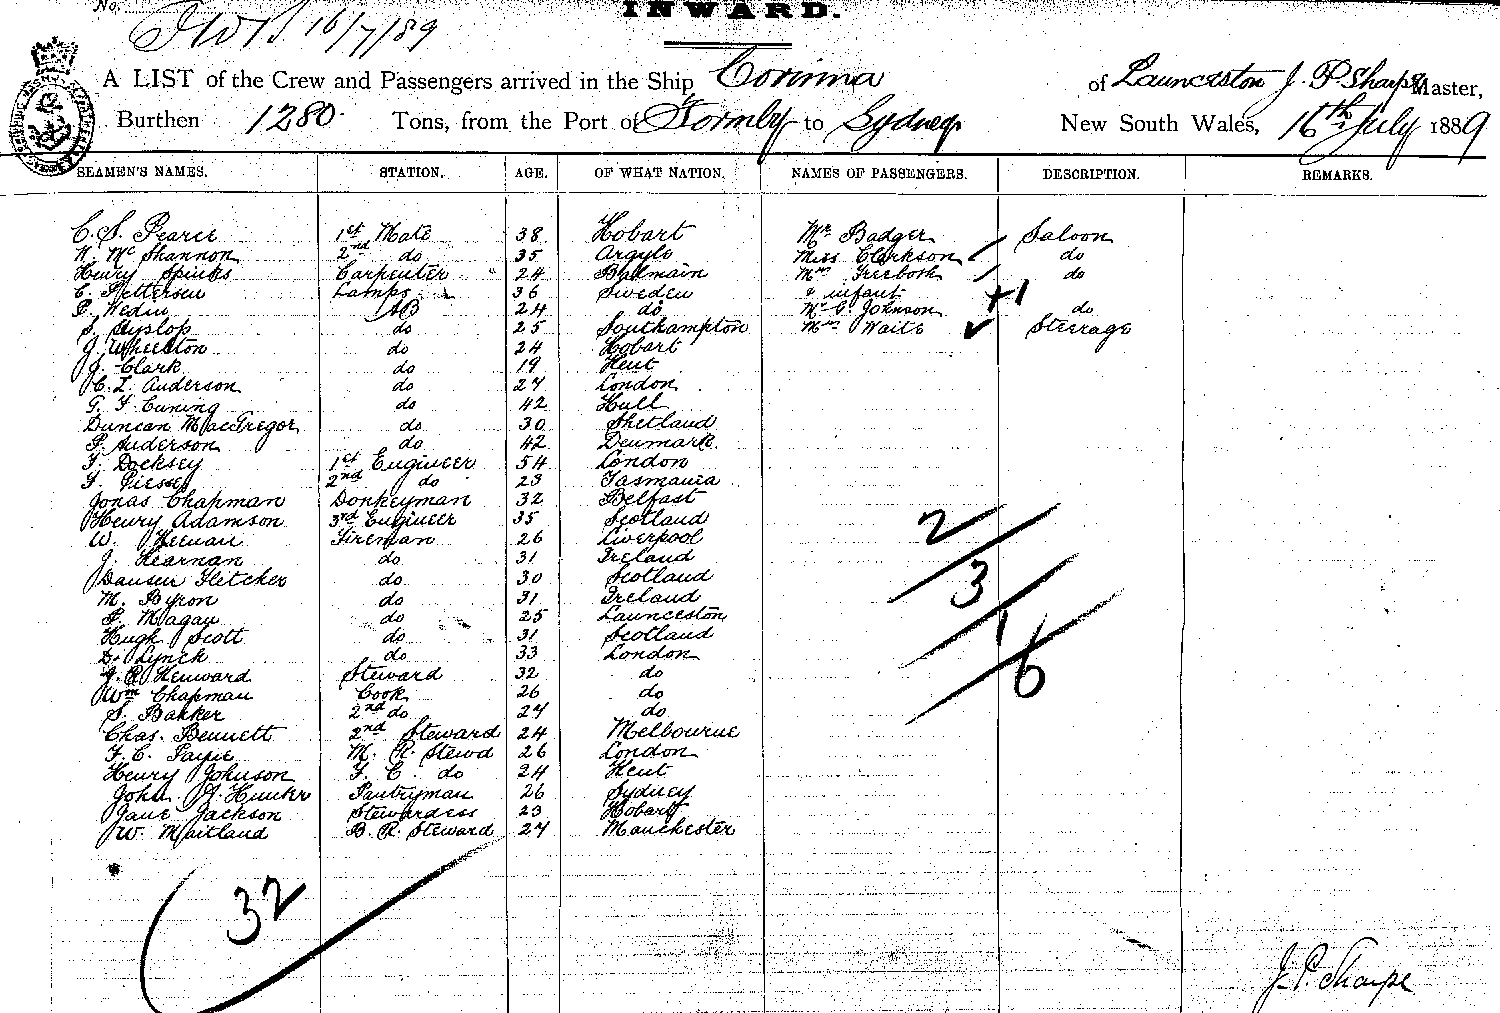 No.
INWARD.
16/7/89
A LIST of the Crew and Passengers arrived in the Ship Corinna of Launceston J. P Sharpe Master,
Burthen 1280 Tons, from the Port of Formby to Sydney New South Wales, 16th July 1889
SEAMEN'S NAMES. STATION. AGE. OF WHAT NATION. NAMES OF PASSENGERS. DESCRIPTION. REMARKS.
C. S. Pearce 1st Mate 38 Hobart Mr Badger Saloon
N. Mc Shannon 2nd do 35 Argyle Miss Clarkson do
Henry Spinks Carpenter 24 Balmain Mrs Freebosh do
C. Pettersen Lamps 36 Sweden & infant +1
P. Wedin AB 24 do Mr G. Johnson do
S. Hyslop do 25 Southampton Mrs Waite Steerage
J. Wheelton do 24 Hobart
J. Clark do 19 Kent
C. L. Anderson do 27 London
G. F. Cuning do 42 Hull
Duncan MacGregor do 30 Shetland
P. Anderson do 42 Denmark
F. Docksey 1st Engineer 54 London
F. Piesse 2nd do 23 Tasmania
Jonas Chapman Donkeyman 32 Belfast
Henry Adamson 3rd Engineer 35 Scotland
W. Keenan Fireman 26 Liverpool
J. Kearnan do 31 Ireland
Dausen Fletcher do 30 Scotland
M. Byron do 31 Ireland
P. Magan do 25 Launceston
Hugh Scott do 31 Scotland
D. Lynch do 33 London
J. R Henward Steward 32 do
Wm Chapman Cook 26 do
S. Bakker 2nd do 27 do
Chas. Bennett 2nd Steward 24 Melbourne
F. C. Payne M. R. Stewd 26 London
Henry Johnson F. C. do 24 Kent
John J. Hunter Pantryman 26 Sydney
Jane Jackson Stewardess 23 Hobart
W. Maitland B. R. Steward 27 Manchester
2/
3/
1/
6
32
J. P. Sharpe